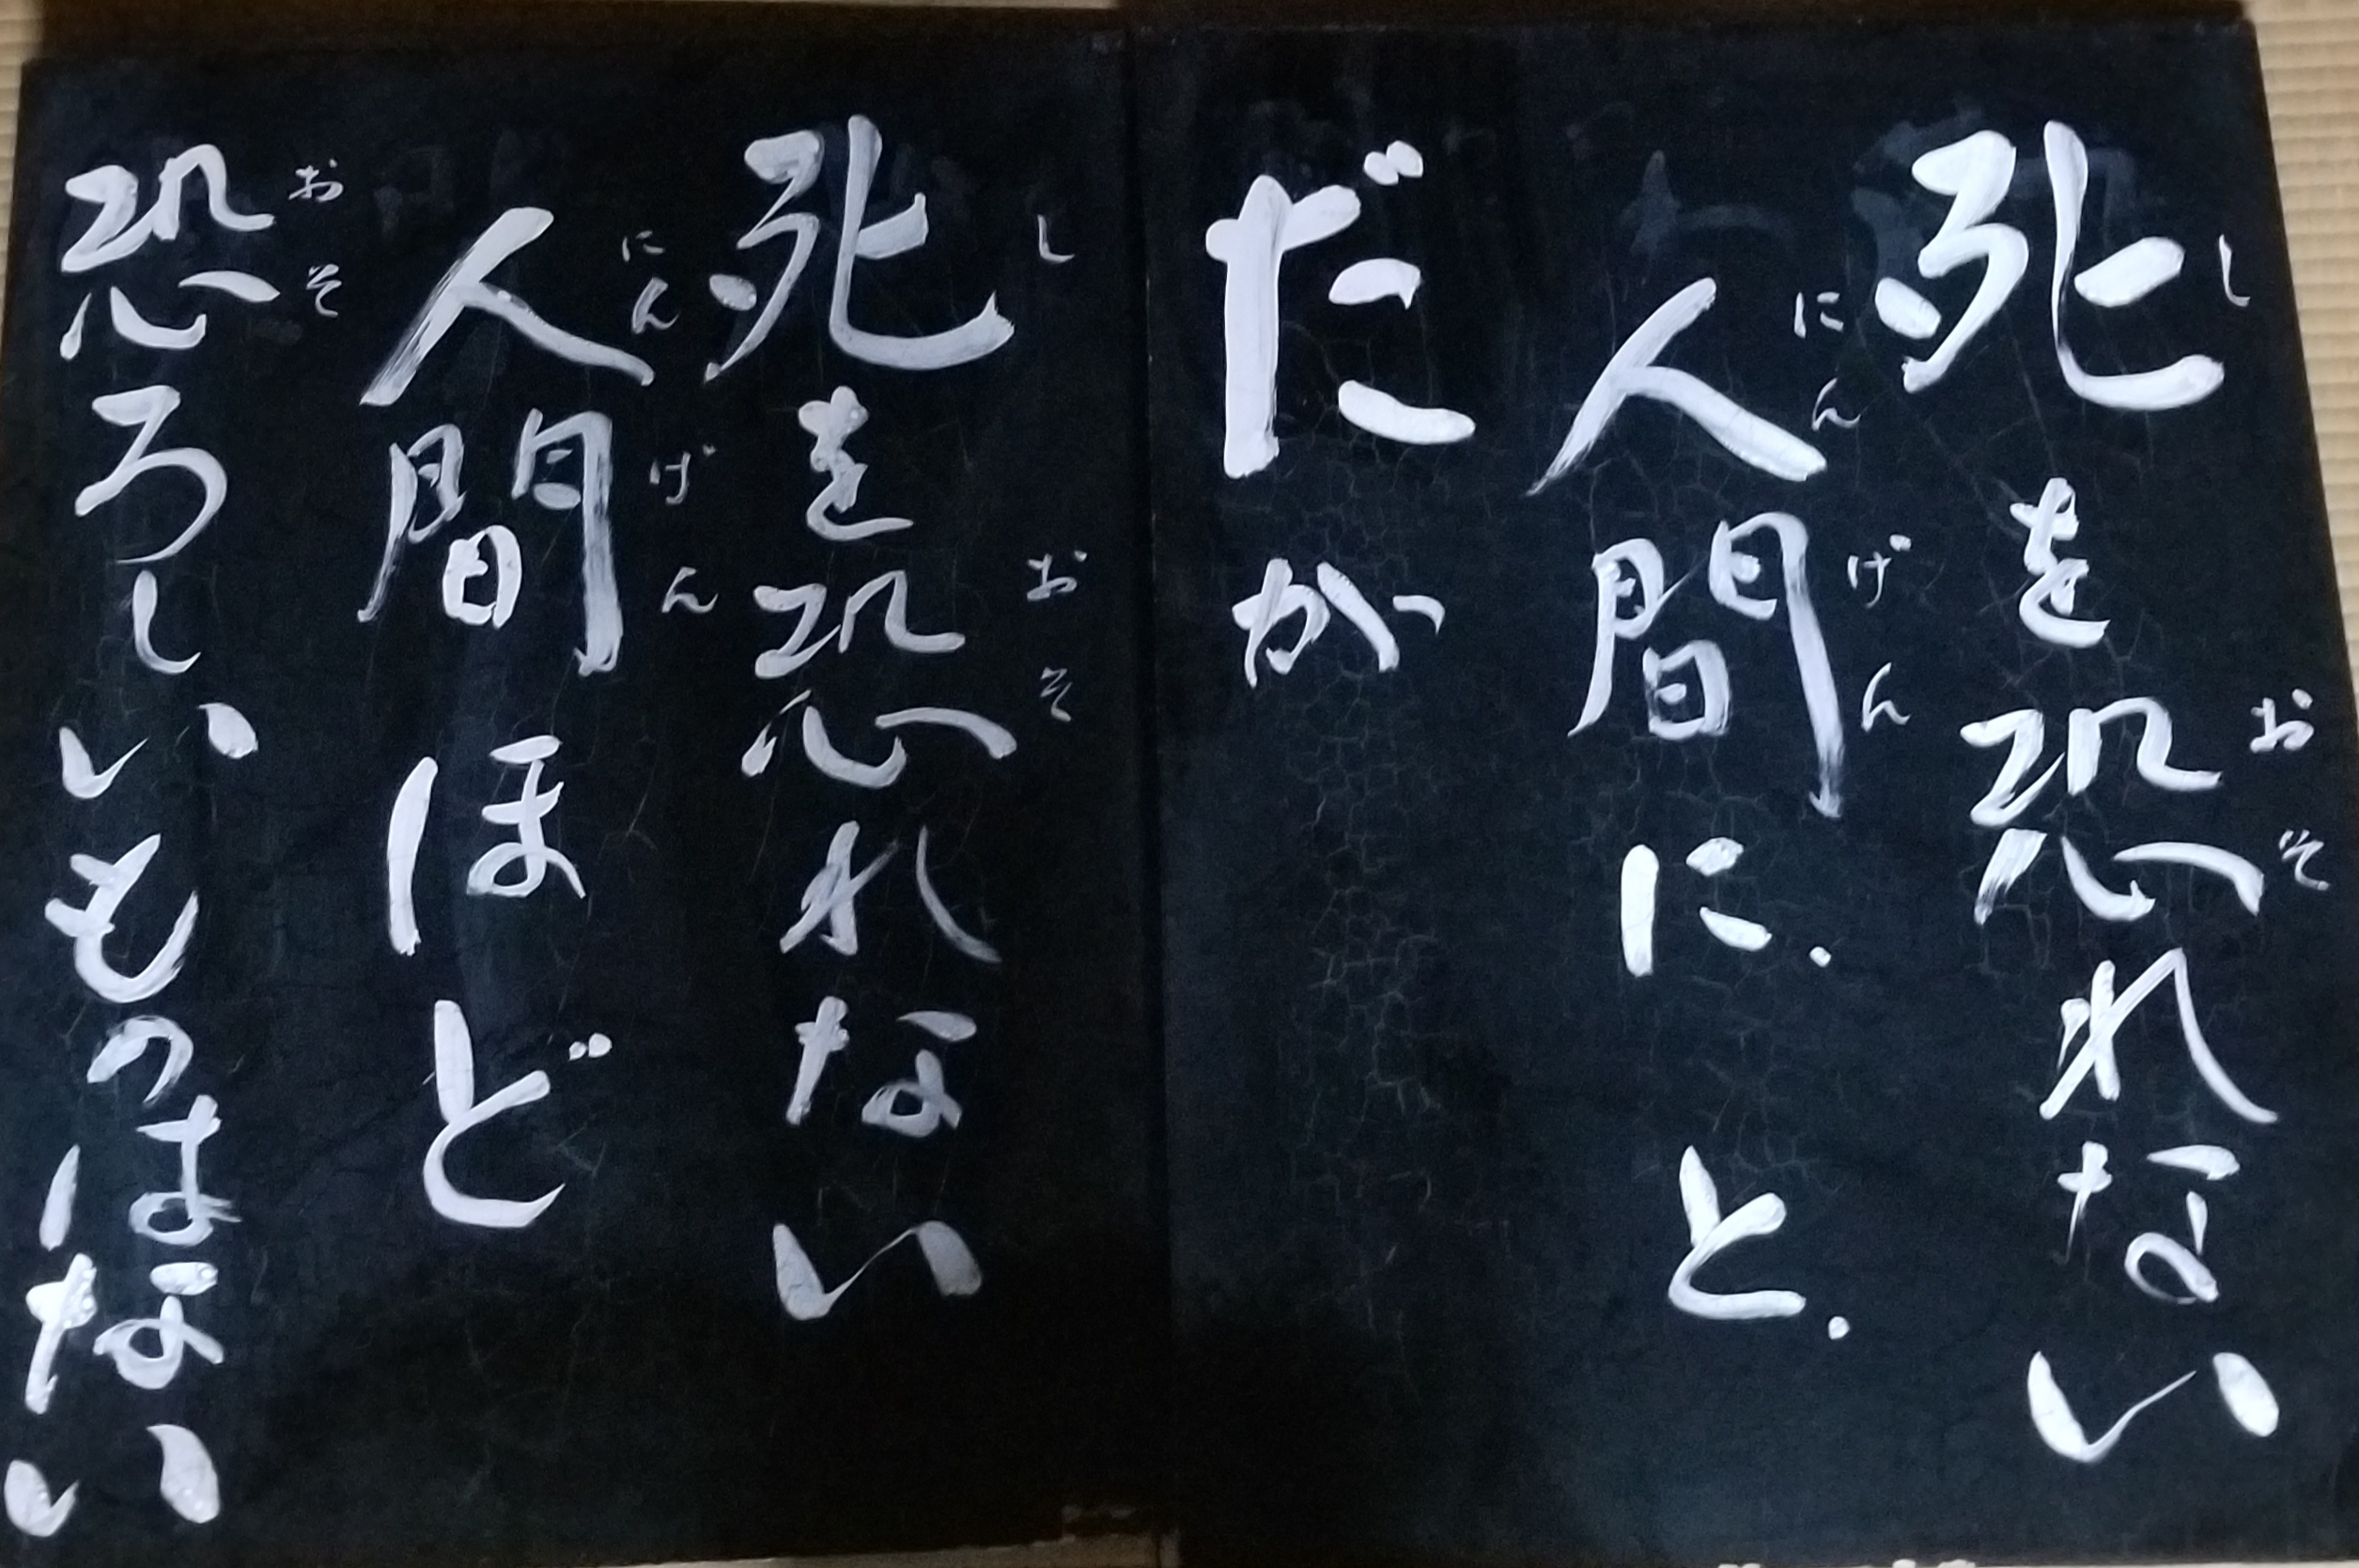 死を恐れない
人間に.と.
だが
死を恐れない
人間ほど
恐ろしいものはない